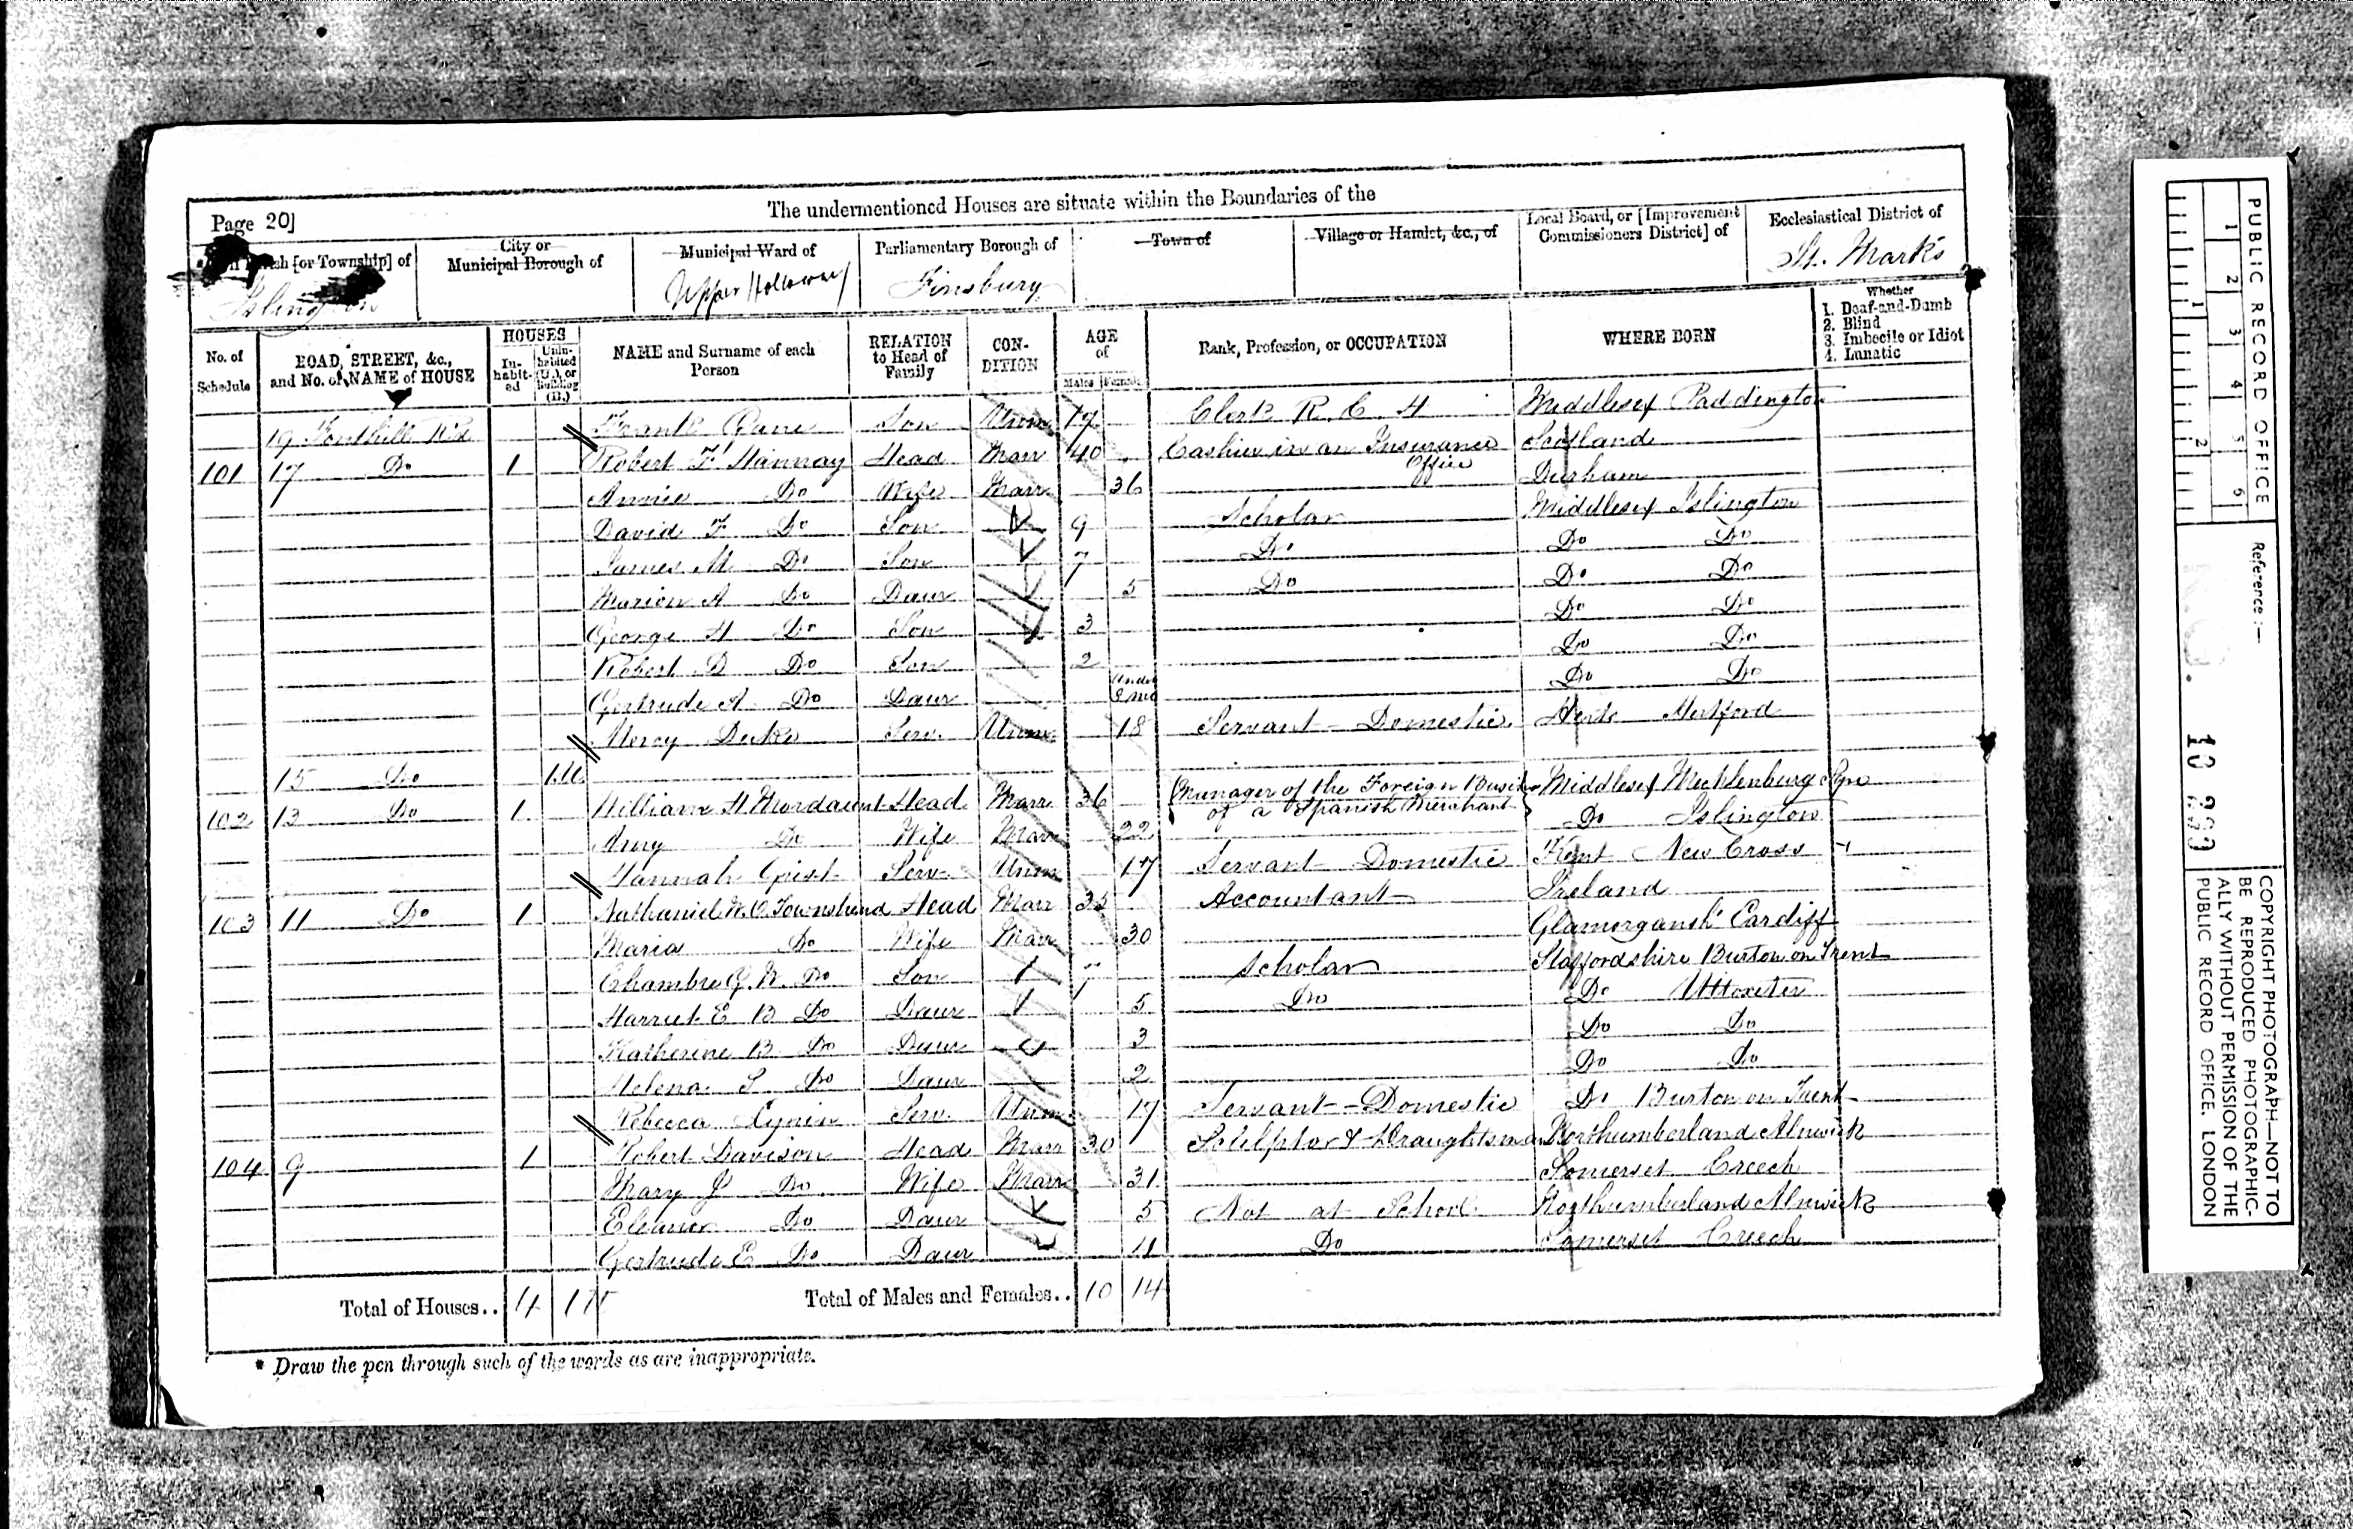 The undermentioned Houses are situate within the Boundaries of the
Page 20]
Parish [or Township] of
City or Municipal Borough of
Municipal Ward of
Parliamentary Borough of
Town of
Village or Hamlet, &c., of
Local Board, or [Improvement Commissioners District] of
Ecclesiastical District of
Islington
Upper Holloway
Finsbury
St. Mark's
No. of Schedule
ROAD, STREET, &c., and No. or NAME of HOUSE
HOUSES
Inhabited
Uninhabited (U.), or Building (B.)
NAME and Surname of each Person
RELATION to Head of Family
CONDITION
AGE of
Males
Females
Rank, Profession, or OCCUPATION
WHERE BORN
Whether
1. Deaf-and-Dumb
2. Blind
3. Imbecile or Idiot
4. Lunatic
19 Fonthill Rd Frank Son Unm 19 Clerk R. C. H Middlesex Paddington
101 17 Do 1 Robert F Hannay Head Marr 40 Cashier in an Insurance Office Scotland
Annie Do Wife Marr 36 Durham
David F Do Son 9 Scholar Middlesex Islington
James M Do Son 7 Do Do Do
Marion A Do Daur 5 Do Do Do
George H Do Son 3 Do Do
Robert B Do Son 2 Do Do
Gertrude A Do Daur Under Do Do
Mercy Serv. Unm. 18 Servant - Domestic Herts Hertford
15 Do 1U
102 13 Do 1 William H. Mordaunt Head Marr 36 Manager of the Foreign Business of a Spanish Merchant Middlesex Mecklenburg Sqre
Amy Do Wife Marr 22 Do Islington
Hannah Serv. Unm 17 Servant - Domestic Kent New Cross
103 11 Do 1 Nathaniel W. O. Townshend Head Marr 35 Accountant Ireland
Maria Do Wife Marr 30 Glamorgansh Cardiff
Chambre G. W. Do Son 7 Scholar Staffordshire Burton on Trent
Harriet E B Do Daur 5 Do Do Uttoxeter
Katherine B Do Daur 3 Do Do
Helena S Do Daur 2 Do Do
Rebecca Serv. Unm. 17 Servant - Domestic Do Burton on Trent
104 9 1 Robert Davison Head Marr 30 Sculptor & Draughtsman Northumberland Alnwick
Mary J Do Wife Marr 31 Somerset Creech
Eleanor Do Daur 5 Not at School Northumberland Alnwick
Gertrude E Do Daur 4 Do Somerset Creech
Total of Houses.. 4 1U Total of Males and Females.. 10 14
* Draw the pen through such of the words as are inappropriate.
PUBLIC RECORD OFFICE
1 2 3 4 5 6
1 2
Reference :—
COPYRIGHT PHOTOGRAPH—NOT TO
BE REPRODUCED PHOTOGRAPHIC-
ALLY WITHOUT PERMISSION OF THE
PUBLIC RECORD OFFICE, LONDON